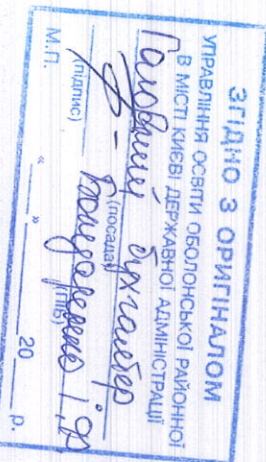 ЗГІДНО З ОРИГІНАЛОМ
УПРАВЛІННЯ ОСВІТИ ОБОЛОНСЬКОЇ РАЙОННОЇ
В МІСТІ КИЄВІ ДЕРЖАВНОЇ АДМІНІСТРАЦІЇ
Головний бухгалтер
(посада)
Бондаренко І.Ф.
(підпис) (ПІБ)
М.П. « » 20 р.